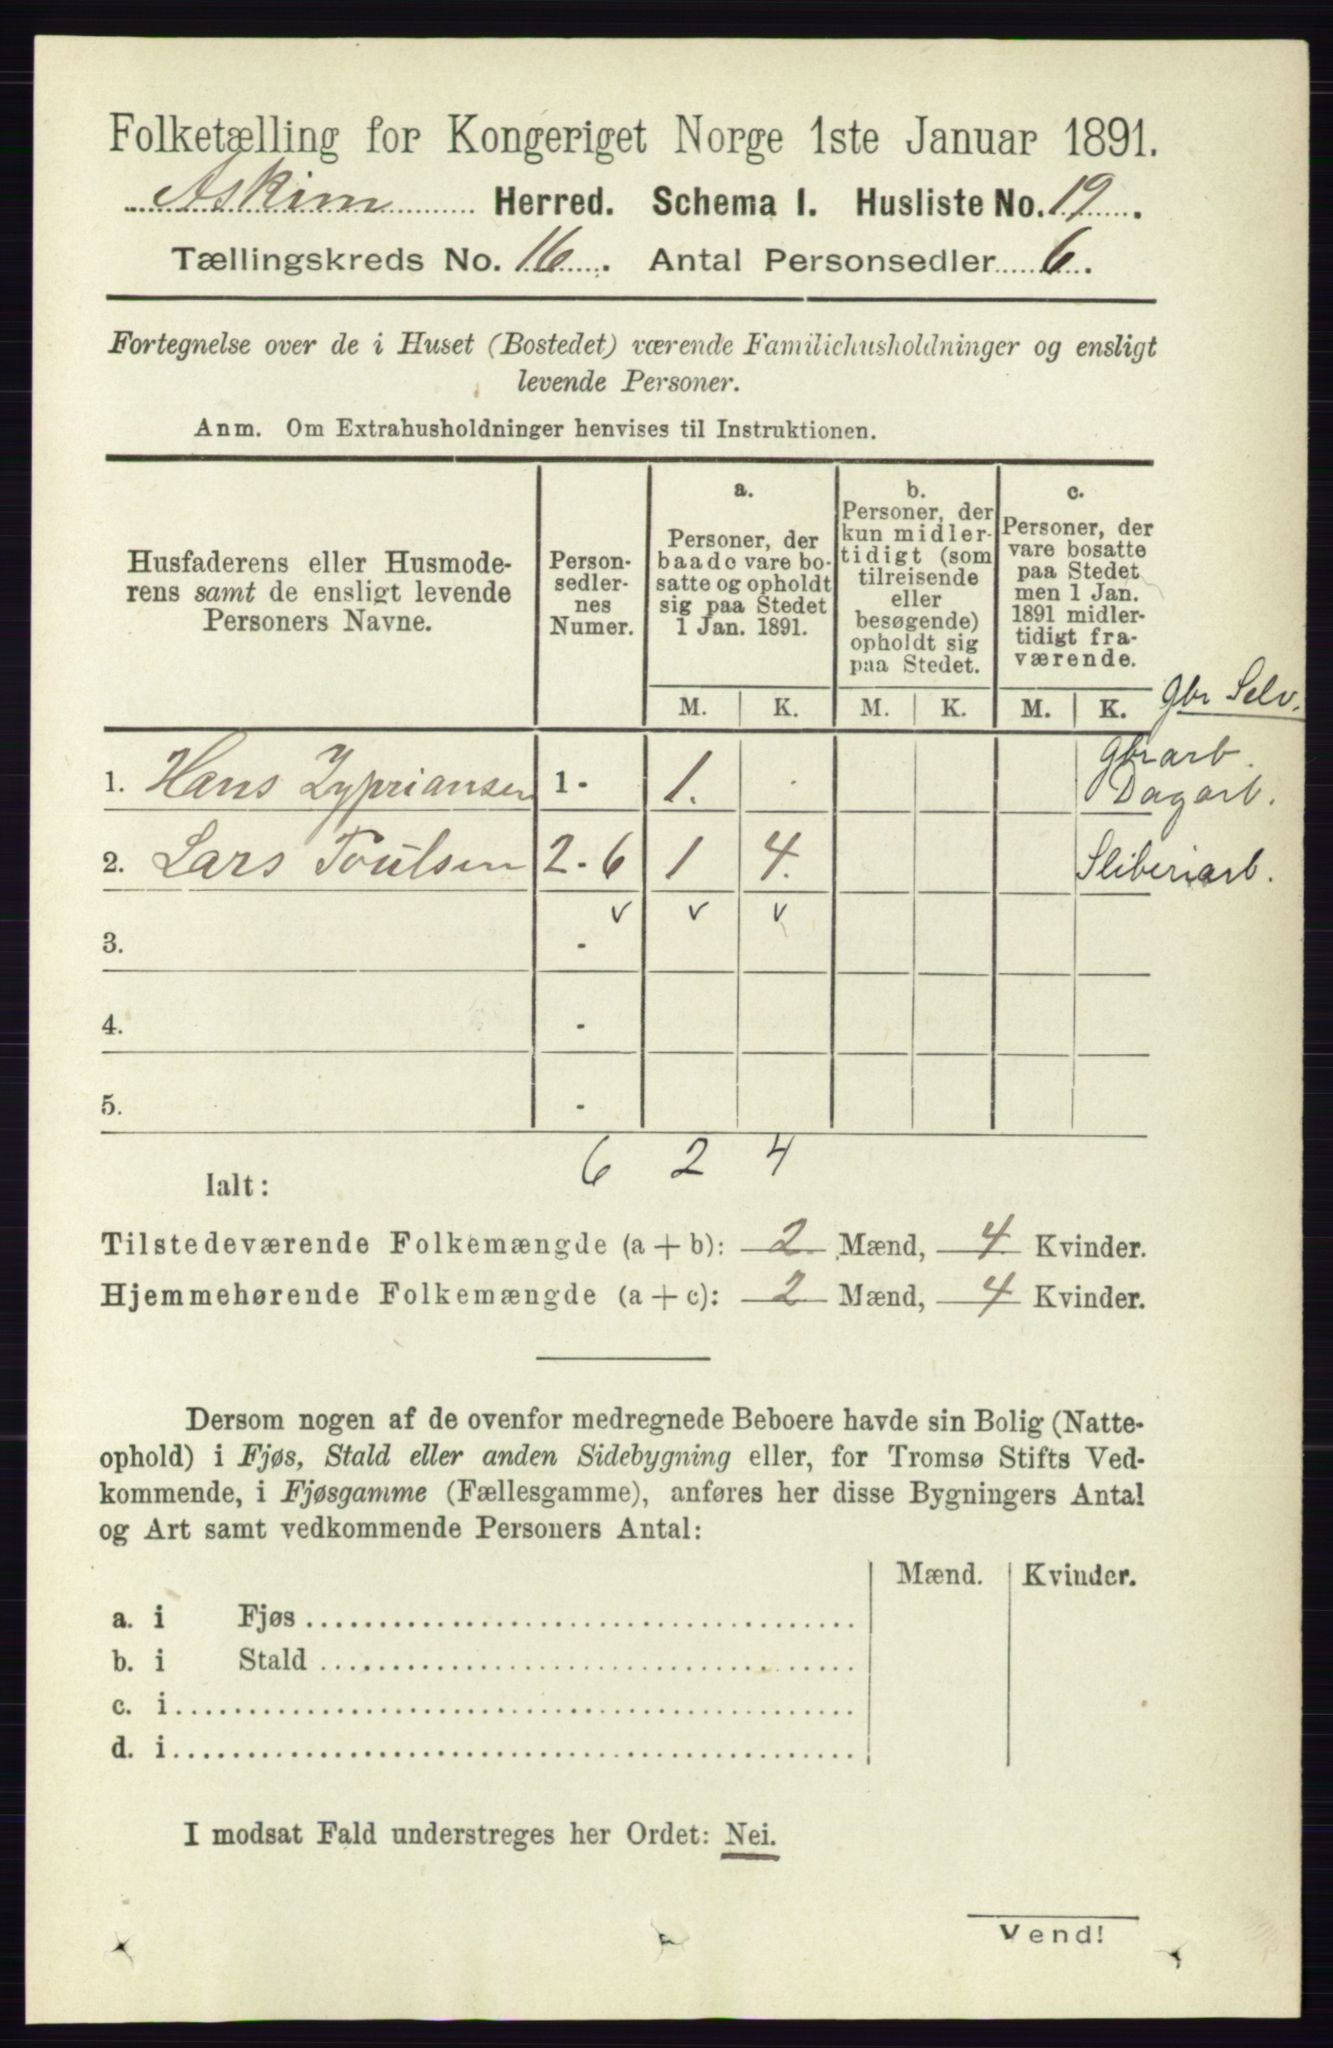 Folketælling for Kongeriget Norge 1ste Januar 1891.
Askim Herred. Schema I. Husliste No. 19.
Tællingskreds No. 16. Antal Personsedler 6.
Fortegnelse over de i Huset (Bostedet) værende Familiehusholdninger og ensligt
levende Personer.
Anm. Om Extrahusholdninger henvises til Instruktionen.
Husfaderens eller Husmode-
rens samt de ensligt levende
Personers Navne.
Person-
sedler-
nes
Numer.
a.
Personer, der
baade vare bo-
satte og opholdt
sig paa Stedet
1 Jan. 1891.
b.
Personer, der
kun midler-
tidigt (som
tilreisende
eller
besøgende)
opholdt sig
paa Stedet.
c.
Personer, der
vare bosatte
paa Stedet
men 1 Jan.
1891 midler-
tidigt fra-
værende.
M. K. M. K. M. K.
Gbr Selv.
Gbrarb.
1. Hans Zypriansen 1 - 1. . Dagarb.
2. Lars Poulsen 2 - 6 1 4. Sliberiarb.
v v v
3. -
4. -
5. -
6 2 4
Ialt:
Tilstedeværende Folkemængde (a + b): 2 Mænd, 4 Kvinder.
Hjemmehørende Folkemængde (a + c): 2 Mænd, 4 Kvinder.
Dersom nogen af de ovenfor medregnede Beboere havde sin Bolig (Natte-
ophold) i Fjøs, Stald eller anden Sidebygning eller, for Tromsø Stifts Ved-
kommende, i Fjøsgamme (Fællesgamme), anføres her disse Bygningers Antal
og Art samt vedkommende Personers Antal:
Mænd. Kvinder.
a. i Fjøs
b. i Stald
c. i
d. i
I modsat Fald understreges her Ordet: Nei.
Vend!